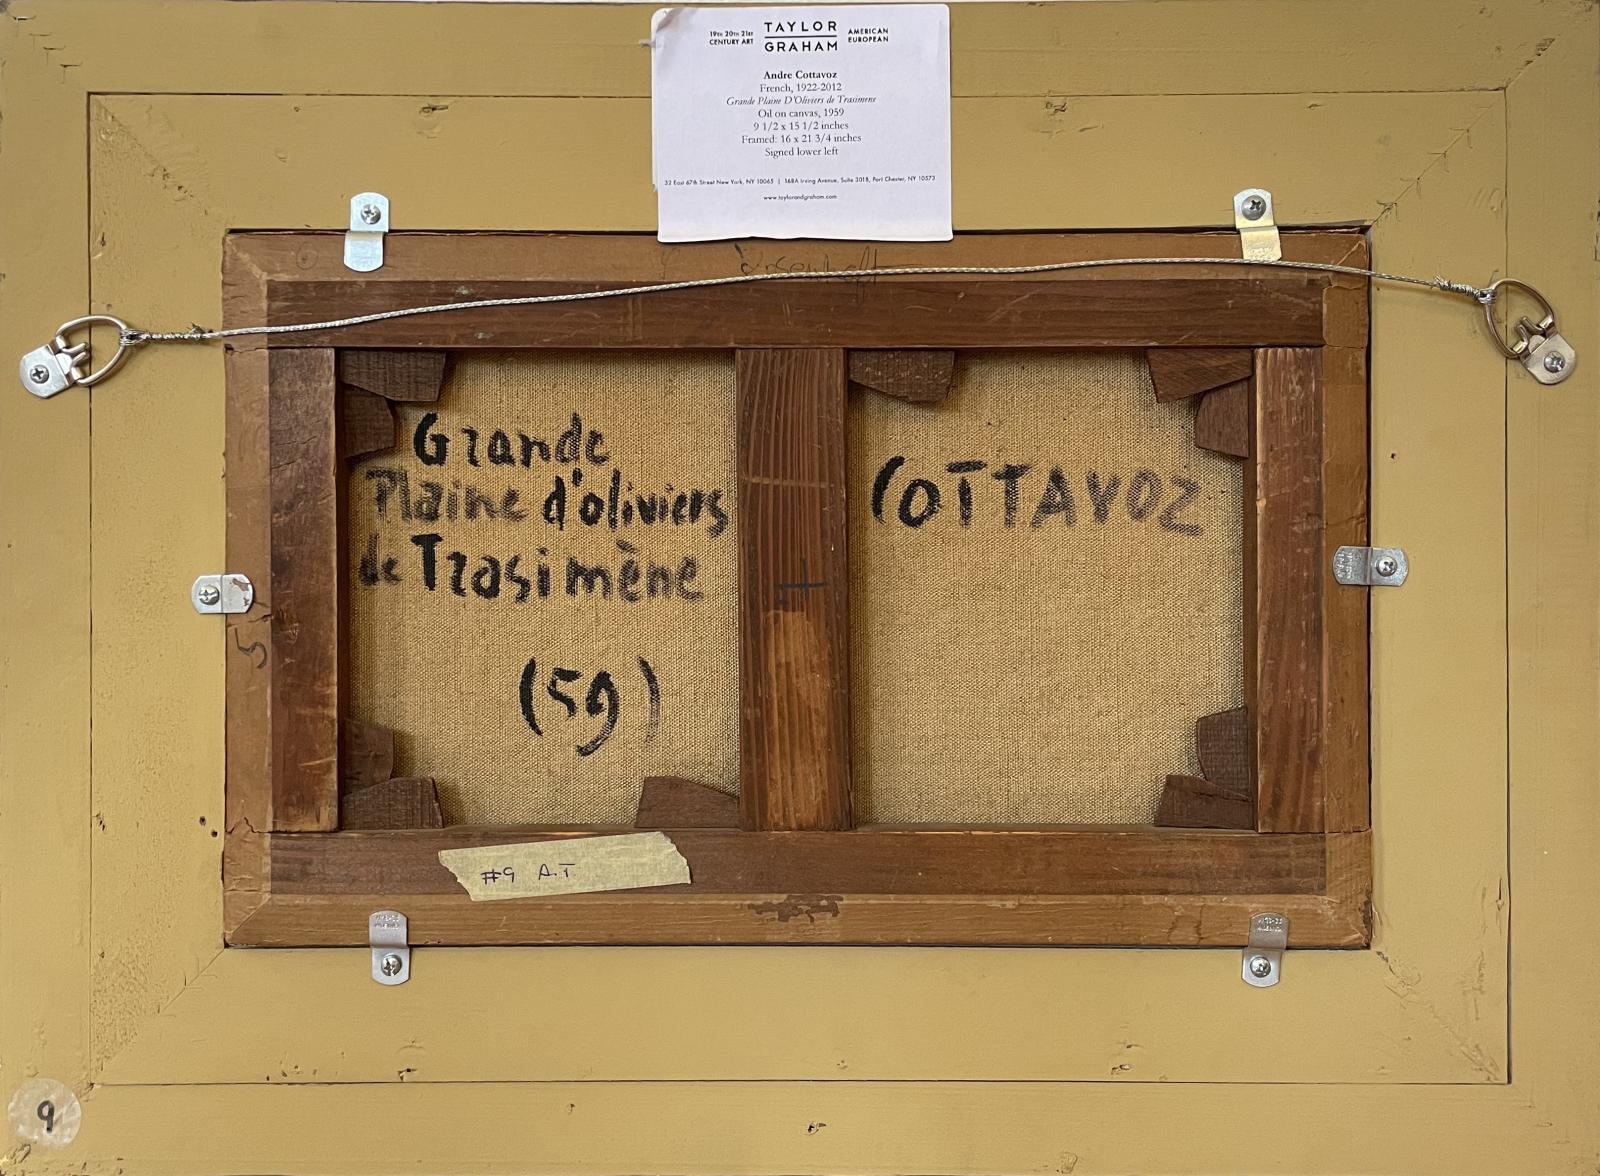 19TH 20TH 21ST
CENTURY ART
TAYLOR
GRAHAM
AMERICAN
EUROPEAN
Andre Cottavoz
French, 1922-2012
Grande Plaine D'Oliviers de Trasimene
Oil on canvas, 1959
9 1/2 x 15 1/2 inches
Framed: 16 x 21 3/4 inches
Signed lower left
32 East 67th Street New York, NY 10065 | 168A Irving Avenue, Suite 301B, Port Chester, NY 10573
www.taylorandgraham.com
Grande
Plaine d'oliviers
de Trasimène
(59)
COTTAVOZ
5
#9 A.T.
9